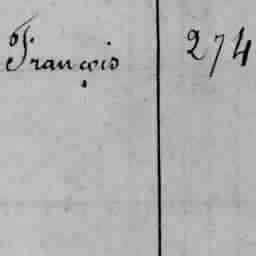 François 274